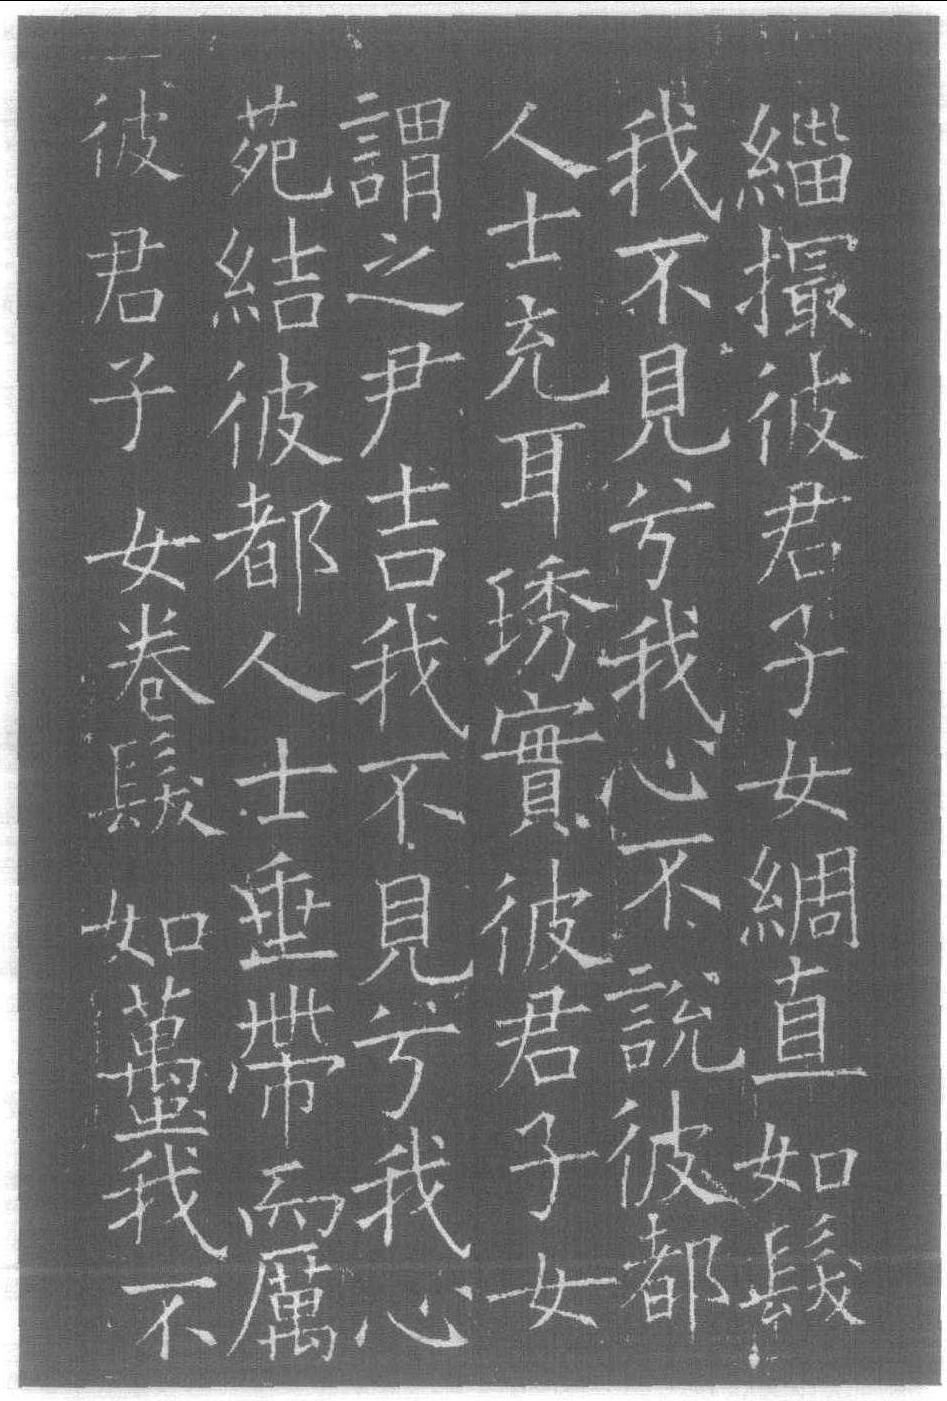 緇撮彼君子女綢直如髮
我不見兮我心不說彼都
人士充耳琇實彼君子女
謂之尹吉我不見兮我心
苑結彼都人士垂帶而厲
彼君子女卷髮如蠆我不